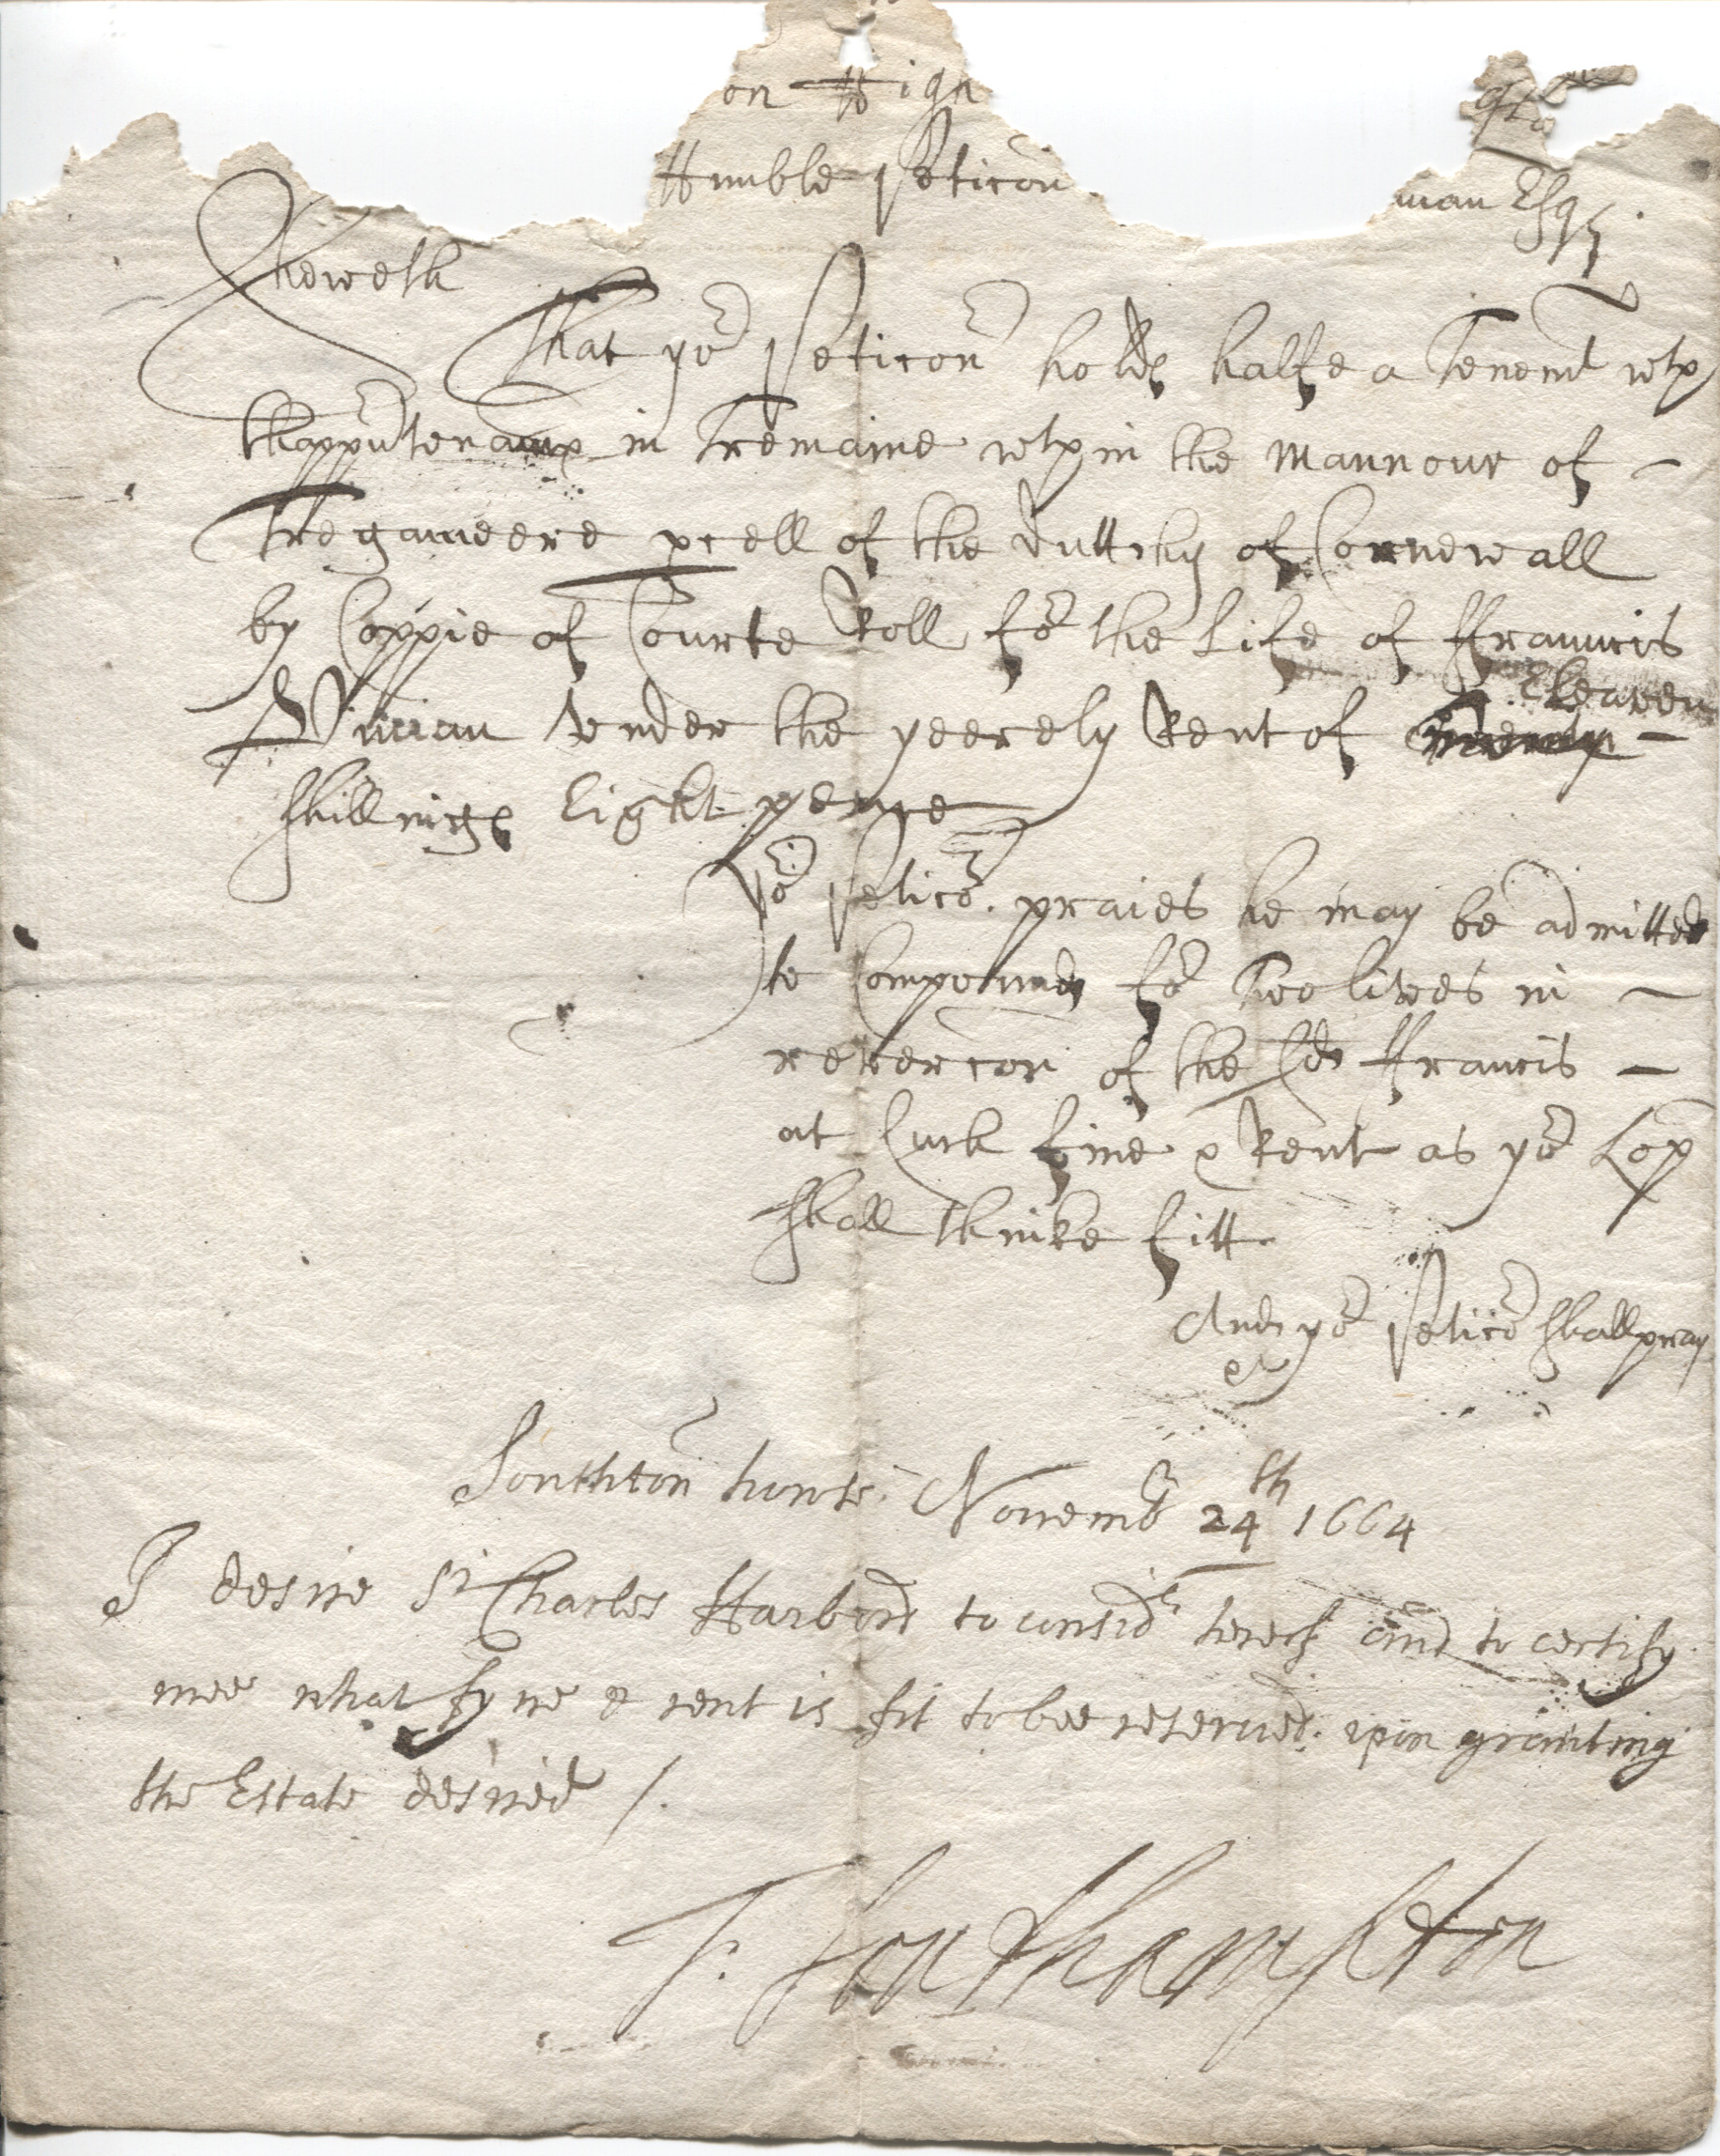 on High
Humble Peticon
man Esqr
Sheweth
That yor Peticonr holds halfe a Tenemt wth
thappurtenances in Tremaine wthin the Mannour of –
Tregameere pcell of the Duttchy of Cornewall
by Coppie of Courte Roll for the Life of ffrauncis
Vivian vnder the yeerely Rent of Eleaven –
shillings Eight pence
Yor Peticor. praies he may be admitted
to Compound for Two lives in –
revercon of the sd ffrancis –
at such fine & Rent as yor Lop
shall thinke fitt
And yor Peticor shall pray
&c
Southton house. Novembr 24th 1664
I desire Sr Charles Harbord to considr hereof and to certify
mee what fyne & rent is fit to bee reserued. vpon granting
the Estate desired /.
T. Southampton